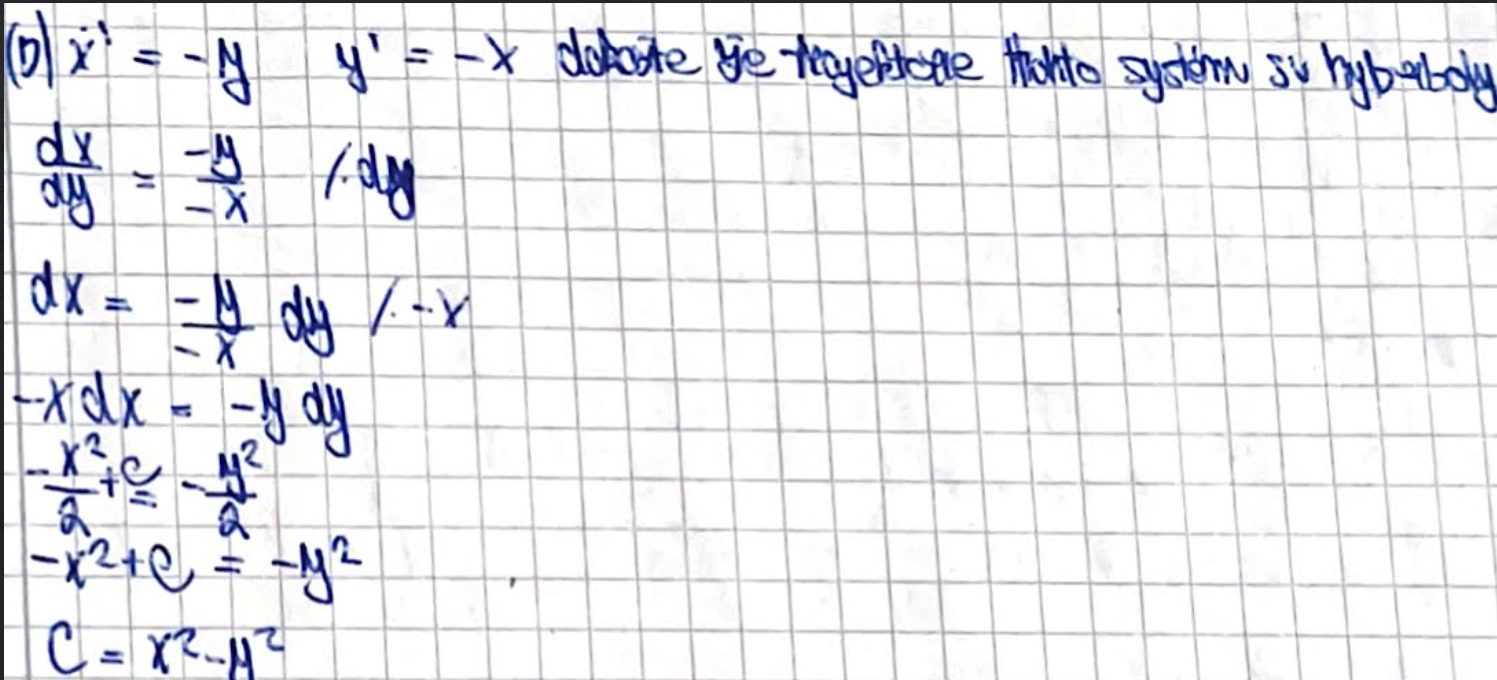 (D) x' = -y y' = -x dokážte že trajektórie tohto systému sú hyperboly
dx/dy = -y/-x /·dy
dx = -y/-x dy /·-x
-x dx = -y dy
-x²/2 + C = -y²/2
-x² + C = -y²
C = x² - y²